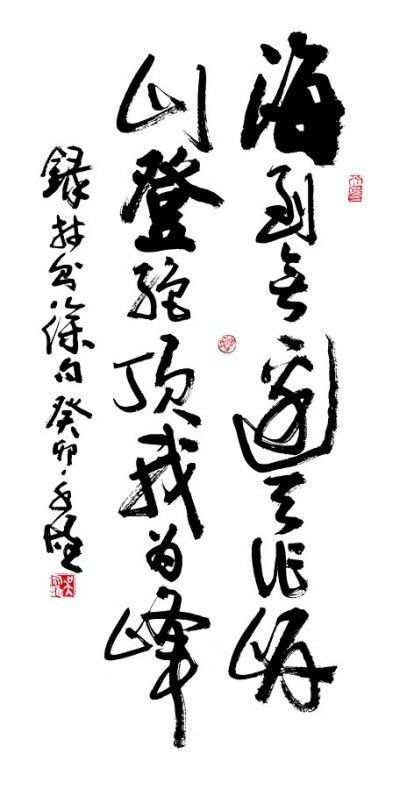 海到无边天作岸
山登绝顶我为峰
録林则徐句 癸卯